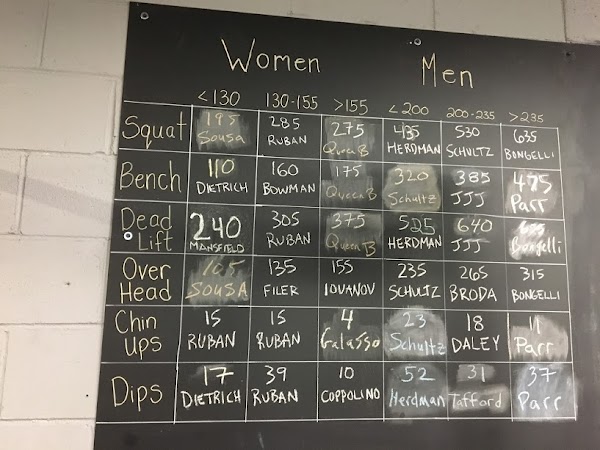 Women Men
<130 130-155 >155 <200 200-235 >235
Squat 195 285 275 435 530 635
Sousa RUBAN Queen B HERDMAN SCHULTZ BONGELLI
Bench 110 160 175 320 385 475
DIETRICH BOWMAN Queen B Schultz JJJ Parr
Dead 240 305 375 525 640
Lift MANSFIELD RUBAN Queen B HERDMAN JJJ Bongelli
Over 105 135 155 235 265 315
Head SOUSA FILER IOVANOV SCHULTZ BRODA BONGELLI
Chin 15 15 4 23 18 11
ups RUBAN RUBAN Galasso Schultz DALEY Parr
Dips 17 39 10 52 31 37
DIETRICH RUBAN COPPOLINO Herdman Tafford Parr